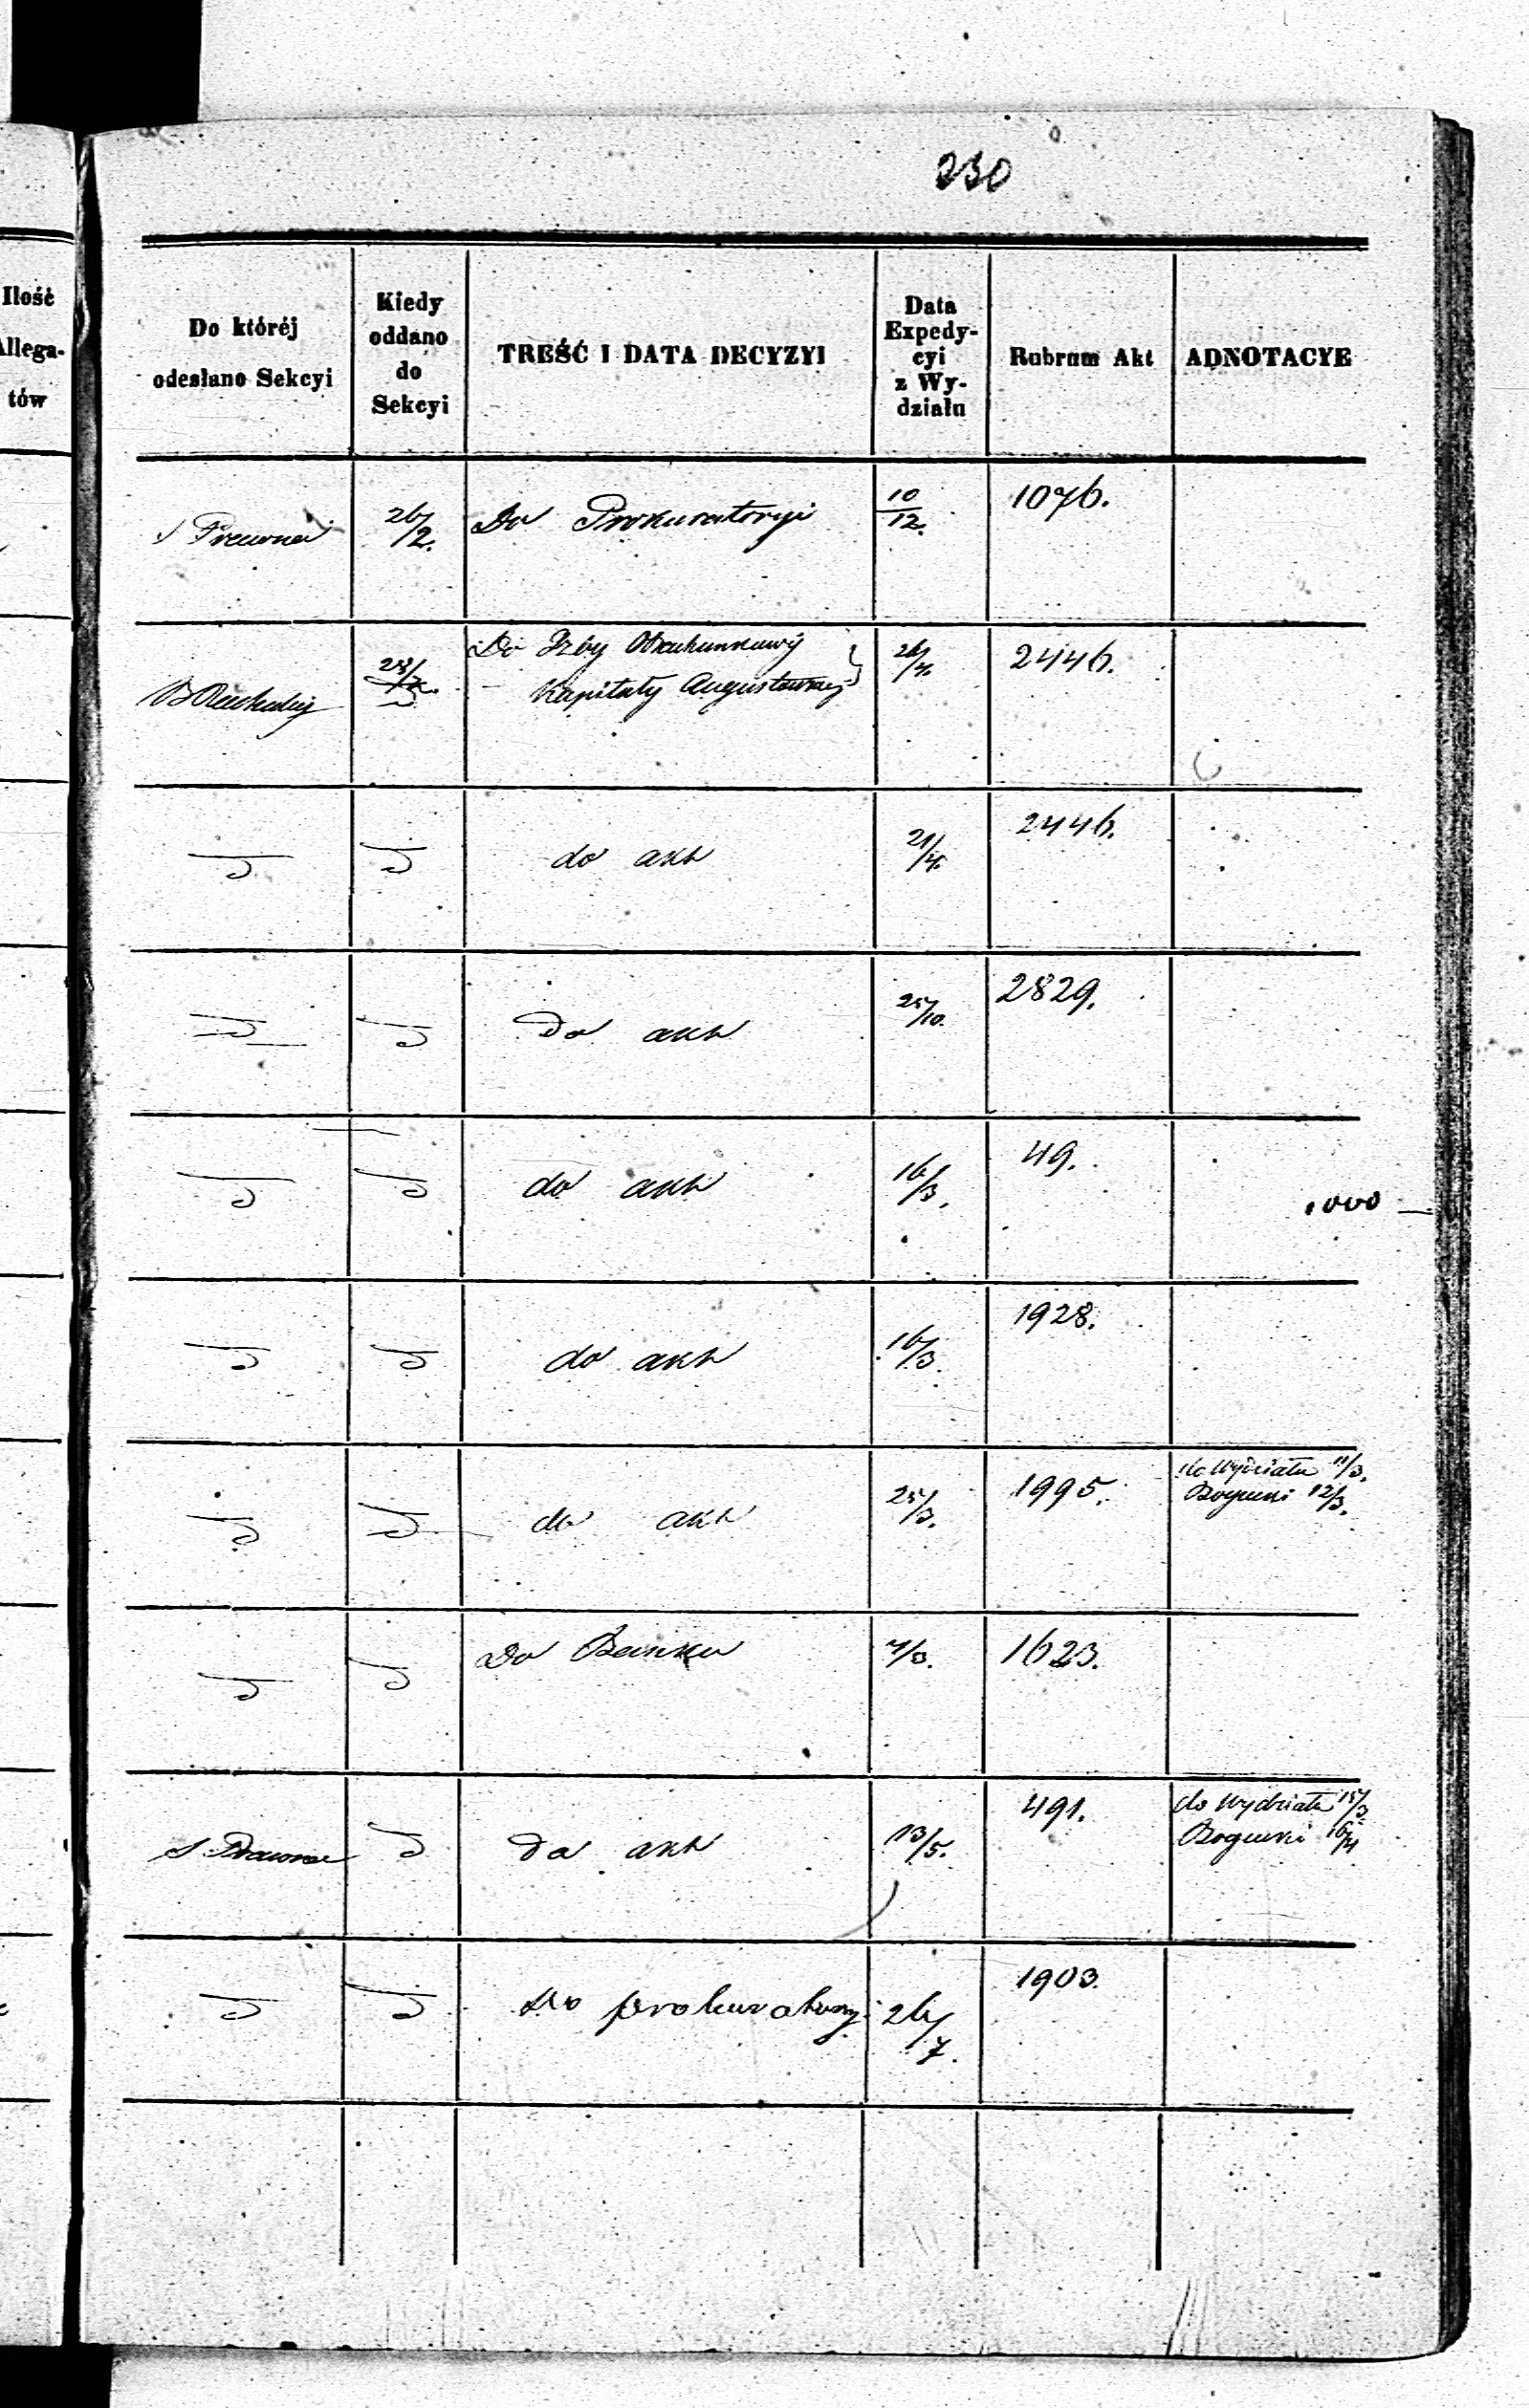 230
Ilość
Allega-
tów
Do któréj
odesłano Sekcyi
Kiedy
oddano
do
Sekcyi
TREŚĆ I DATA DECYZYI
Data
Expedy-
cyi
z Wy-
działu
Rubrum Akt
ADNOTACYE
S Prawna 26/2. Do Prokuratoryi 10/12. 1076.
Do Izby Obrachunkowéj 26/4. 2446.
Kapituły Augustowskiej
do akt 21/4. 2446.
Do akt 25/10. 2829.
do akt 16/3. 49.
1000
do akt 16/3. 1928.
do akt 25/3. 1995. do Wydziału 11/3.
Bogucki 12/3.
Do Banku 7/3. 1623.
S. Prawna Do akt 13/5. 491. do Wydziału 15/3
Bogucki 16/4
Do prokuratoryi 26/7. 1903.